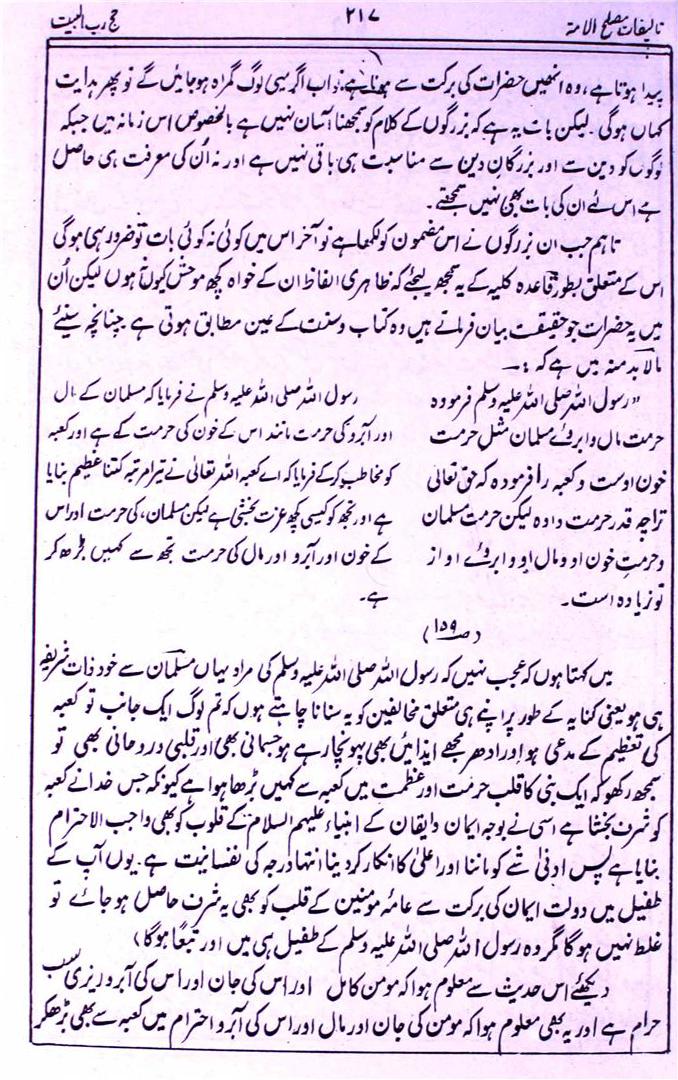 تالیفات مصلح الامۃ ۲۱۷ حج رب البیت
پیدا ہوتا ہے، وہ انھیں حضرات کی برکت سے ہوتا ہے، تو اب اگر یہی لوگ گمراہ ہو جائیں گے تو پھر ہدایت
کہاں ہوگی۔ لیکن بات یہ ہے کہ بزرگوں کے کلام کو سمجھنا آسان نہیں ہے بالخصوص اس زمانہ میں جبکہ
لوگوں کو دین سے اور بزرگانِ دین سے مناسبت ہی باقی نہیں ہے اور نہ اُن کی معرفت ہی حاصل
ہے اس لئے ان کی بات بھی نہیں سمجھتے۔
تاہم جب ان بزرگوں نے اس مضمون کو لکھا ہے تو آخر اس میں کوئی نہ کوئی بات تو ضرور ہی ہوگی
اس کے متعلق بطور قاعدہ کلیہ کے یہ سمجھ لیجئے کہ ظاہری الفاظ ان کے خواہ کچھ موحش کیوں نہ ہوں لیکن اُن
میں یہ حضرات جو حقیقت بیان فرماتے ہیں وہ کتاب و سنت کے عین مطابق ہوتی ہے چنانچہ سنیئے
مالابدمنہ میں ہے کہ :۔
"رسول اللہ صلی اللہ علیہ وسلم فرمودہ
حرمت مال وابروئے مسلمان مثل حرمت
خون اوست و کعبہ را فرمودہ کہ حق تعالیٰ
تراچہ قدر حرمت دادہ لیکن حرمت مسلمان
و حرمتِ خون او و مال او و ابروئے او از
تو زیادہ است۔
رسول اللہ صلی اللہ علیہ وسلم نے فرمایا کہ مسلمان کے مال
اور آبرو کی حرمت مانند اس کے خون کی حرمت کے ہے اور کعبہ
کو مخاطب کرکے فرمایا کہ اے کعبہ اللہ تعالیٰ نے تیرا مرتبہ کتنا عظیم بنایا
ہے اور تجھ کو کیسی کچھ عزت بخشی ہے لیکن مسلمان، کی حرمت اور اس
کے خون اور آبرو اور مال کی حرمت تجھ سے کہیں بڑھ کر
ہے۔
(ص ۱۵۹)
میں کہتا ہوں کہ عجب نہیں کہ رسول اللہ صلی اللہ علیہ وسلم کی مراد یہاں مسلمان سے خود ذات شریفہ
ہی ہو یعنی کنایہ کے طور پر اپنے ہی متعلق مخالفین کو یہ سنانا چاہتے ہوں کہ تم لوگ ایک جانب تو کعبہ
کی تعظیم کے مدعی ہو اور ادھر مجھے ایذائیں بھی پہونچا رہے ہو جسمانی بھی اور قلبی و روحانی بھی تو
سمجھ رکھو کہ ایک نبی کا قلب حرمت اور عظمت میں کعبہ سے کہیں بڑھا ہوا ہے کیونکہ جس خدا نے کعبہ
کو شرف بخشا ہے اسی نے بوجہ ایمان و ایقان کے انبیاء علیہم السلام کے قلوب کو بھی واجب الاحترام
بنایا ہے پس ادنیٰ شے کو ماننا اور اعلیٰ کا انکار کر دینا انتہا درجہ کی نفسانیت ہے۔ یوں آپ کے
طفیل میں دولت ایمان کی برکت سے عامۂ مومنین کے قلب کو بھی یہ شرف حاصل ہو جائے تو
غلط نہیں ہوگا مگر وہ رسول اللہ صلی اللہ علیہ وسلم کے طفیل ہی میں اور تبعًا ہوگا)
دیکھئے اس حدیث سے معلوم ہوا کہ مومن کامل اور اس کی جان اور اس کی آبرو ریزی سب
حرام ہے اور یہ بھی معلوم ہوا کہ مومن کی جان اور مال اور اس کی آبرو احترام میں کعبہ سے بھی بڑھکر